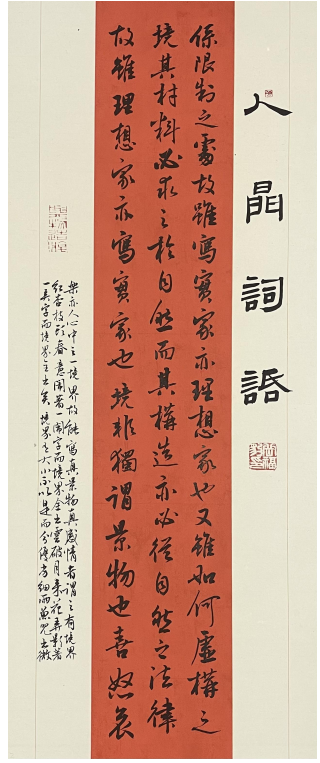 人間詞話
係限制之處故雖寫實家亦理想家也又雖如何虛構之
境其材料必求之於自然而其構造亦必從自然之法律
故雖理想家亦寫實家也境非獨謂景物也喜怒哀
樂亦人心中之一境界故能寫真景物真感情者謂之有境界
紅杏枝頭春意鬧著一鬧字而境界全出雲破月來花弄影著
一弄字而境界全出矣境界有大小不以是而分優劣細雨魚兒出微